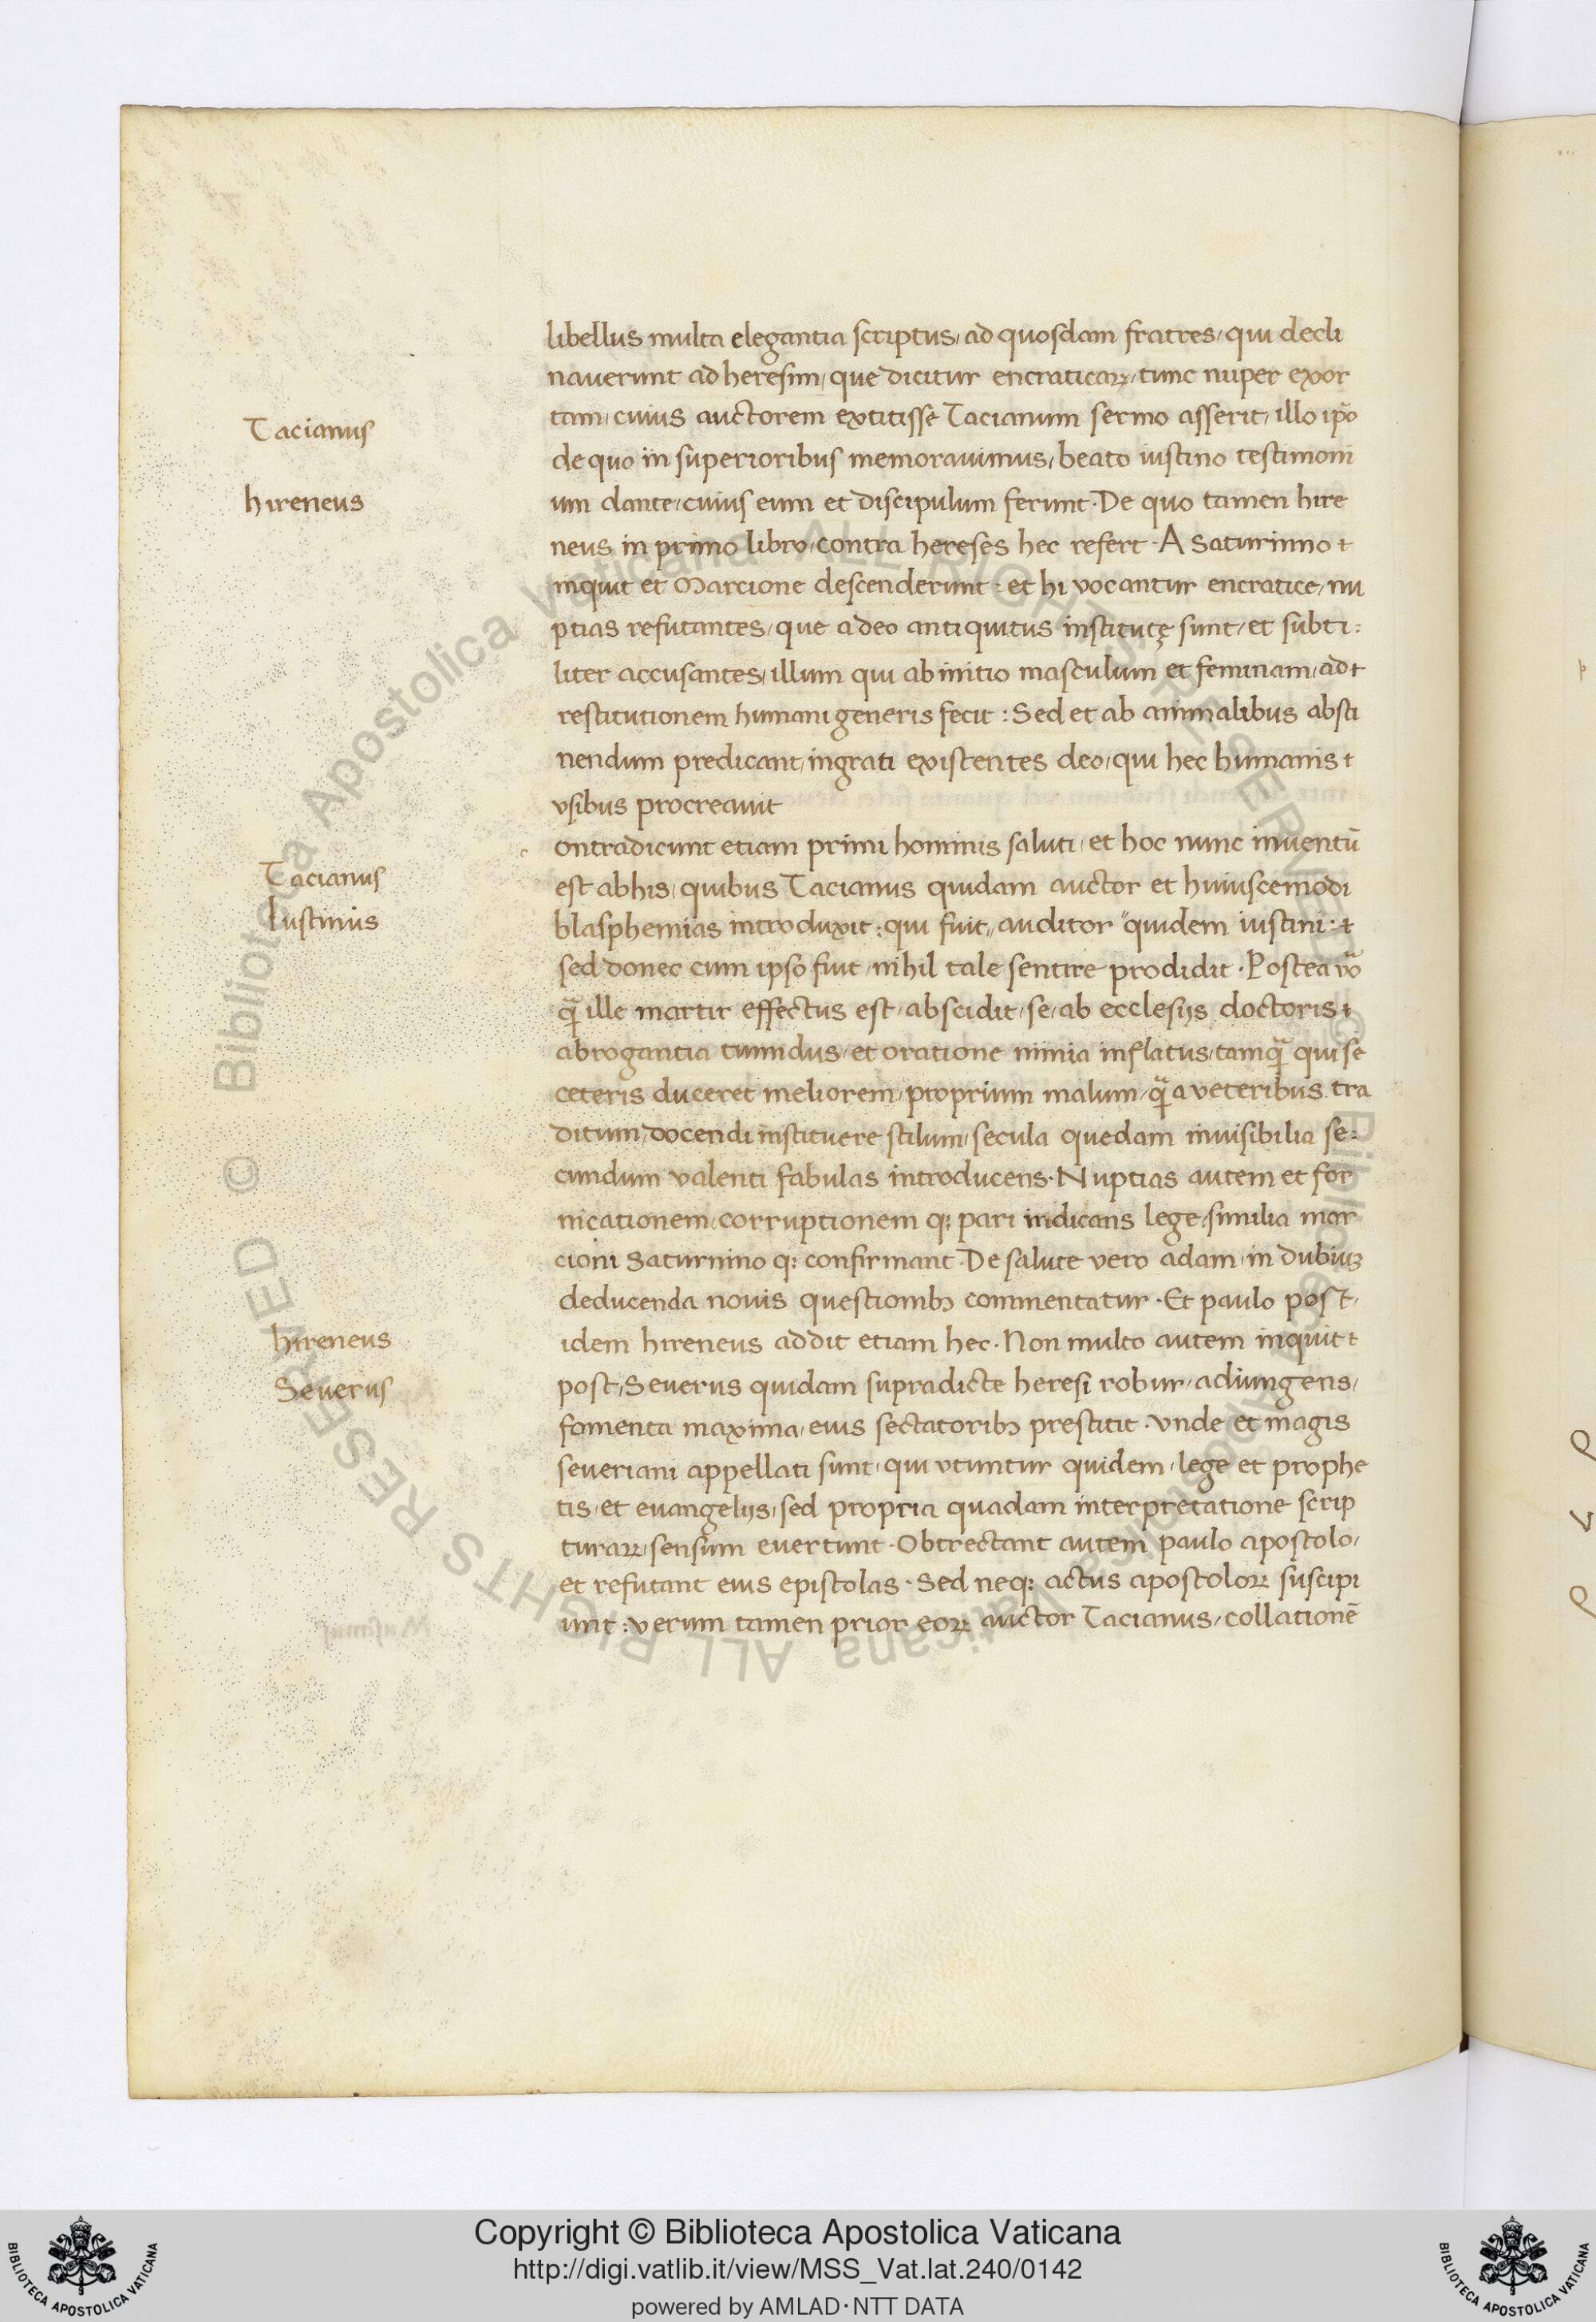 libellus multa elegantia scriptus, ad quosdam fratres, qui decli
nauerunt ad heresim, que dicitur encraticaꝝ, tunc nuper exor
tam, cuius auctorem extitisse Tacianum sermo asserit, illo ip̄o
Tacianus
de quo in superioribus memorauimus, beato iustino testimoni
um dante, cuius eum et discipulum ferunt. De quo tamen hire
hireneus
neus in primo libro, contra hereses hec refert. A Saturinno
inquit et Marcione descenderunt: et hi vocantur encratice, nu
ptias refutantes, que adeo antiquitus institutę sunt, et subti:
liter accusantes, illum qui ab initio masculum et feminam, ad
restitutionem humani generis fecit: Sed et ab animalibus absti
nendum predicant, ingrati existentes deo, qui hec humanis
vsibus procreauit
c ontradicunt etiam primi hominis saluti, et hoc nunc inuentū
Tacianus
est abhis, quibus Tacianus quidam auctor et huiuscemodi
Iustinus
blasphemias introduxit: qui fuit,, auditor "quidem iustini:
sed donec cum ipso fuit, nihil tale sentire prodidit. Postea vō
q̄ ille martir effectus est, abscidit, se, ab ecclesijs doctoris
abrogantia tumidus, et oratione nimia inflatus, tamq̄ qui se
ceteris duceret meliorem, proprium malum, q̄ a veteribus tra
ditum, docendi instituere stilum, secula quedam inuisibilia se:
cundum valenti fabulas introducens. Nuptias autem et for
nicationem, corruptionem q; pari iudicans lege, similia mar
cioni Saturnino q; confirmant. De salute vero adam, in dubiuꝫ
deducenda nouis questionibꝫ commentatur. Et paulo post,
hireneus
idem hireneus addit etiam hec. Non multo autem inquit
Seuerus
post, Seuerus quidam supradicte heresi robur, adiungens,
fomenta maxima, eius sectatoribꝫ prestitit. vnde et magis
seueriani appellati sunt, qui vtuntur quidem, lege et prophe
tis, et euangelijs, sed propria quadam interpretatione scrip
turaꝝ, sensum euertunt. Obtrectant autem paulo apostolo,
et refutant eius epistolas. Sed neq; actus apostoloꝝ suscipi
unt: verum tamen prior eoꝝ auctor Tacianus, collationē
© Biblioteca Apostolica Vaticana ALL RIGHTS RESERVED
© Biblioteca Apostolica Vaticana ALL RIGHTS RESERVED
Copyright © Biblioteca Apostolica Vaticana
http://digi.vatlib.it/view/MSS_Vat.lat.240/0142
powered by AMLAD·NTT DATA
BIBLIOTECA APOSTOLICA VATICANA
BIBLIOTECA APOSTOLICA VATICANA